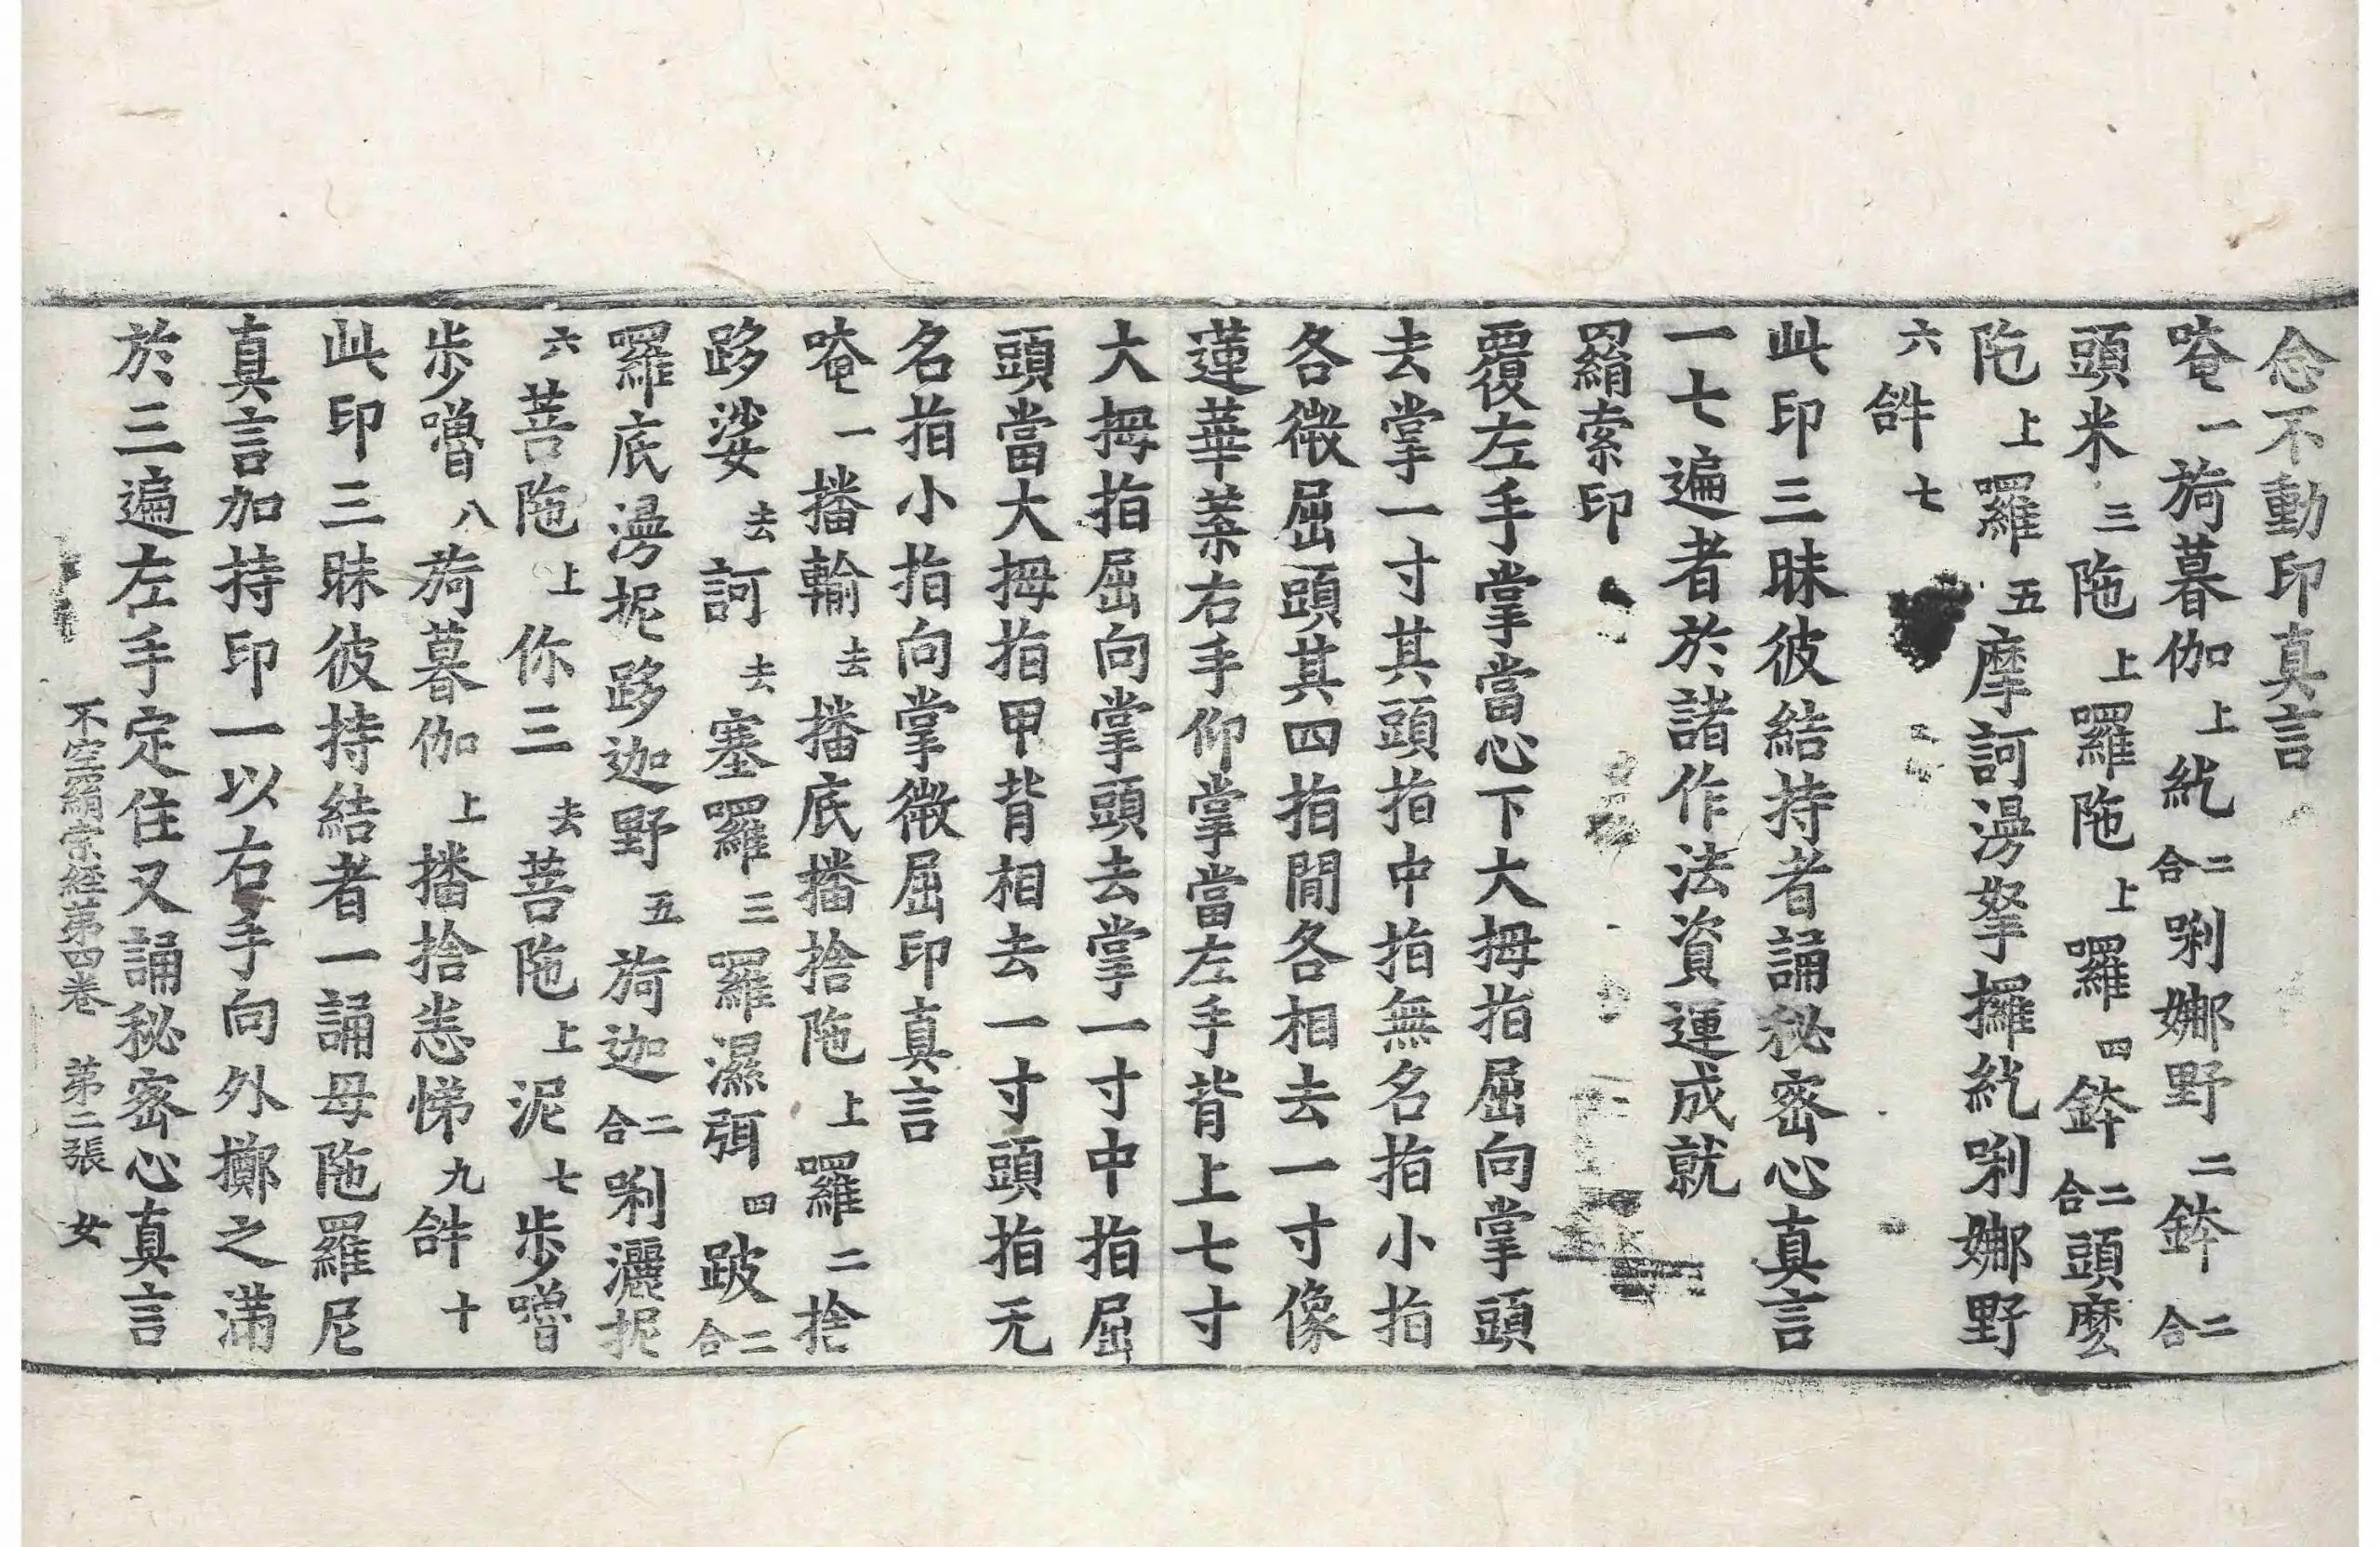 念不動印真言
唵一旖暮伽上紇二合唎娜野二鉢二合
頭米三陁上囉陁上囉四鉢二合頭麽
陁上囉五摩訶𤚥拏攞紇唎娜野
六𤙖七
此印三昧彼結持者誦秘密心真言
一七遍者於諸作法資運成就
羂索印
覆左手掌當心下大拇指屈向掌頭
去掌一寸其頭指中指無名指小指
各微屈頭其四指間各相去一寸像
蓮華葉右手仰掌當左手背上七寸
大拇指屈向掌頭去掌一寸中指屈
頭當大拇指甲背相去一寸頭指无
名指小指向掌微屈印真言
唵一播輸去播底播捨陁上囉二捨
跢娑去訶去塞囉三囉濕弭四跛二合
羅底漫抳跢迦野五旖迦二合唎灑抳
六菩陁上你三去菩陁上泥七步嚕
步嚕八旖暮伽上播捨悉悌九𤙖十
此印三昧彼持結者一誦母陁羅尼
真言加持印一以右手向外擲之滿
於三遍左手定住又誦秘密心真言
不空羂索経第四卷 第二張 女